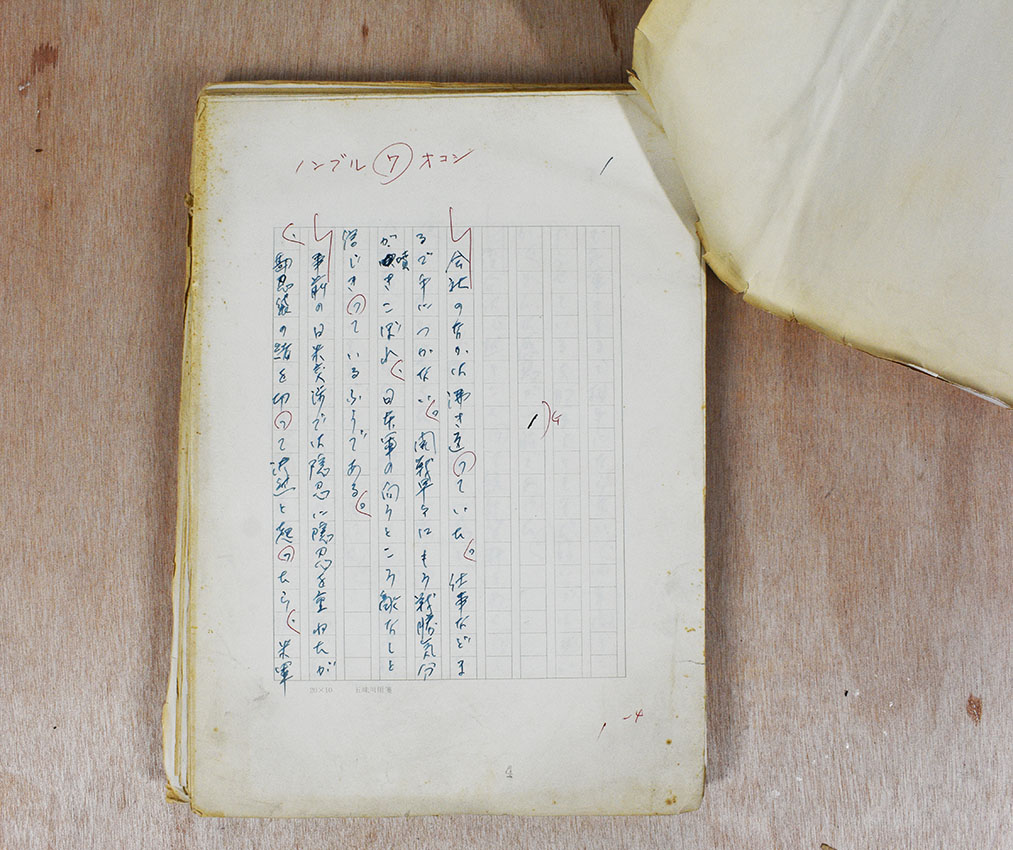 ノンブル ⑦ オコシ
1
1 4
会社のなかは沸き返っていた。仕事などま
るで手につかない。開戦早々にもう戦勝気分
が噴きこぼれ、日本軍の向うところ敵なしと
信じきっているふうである。
事前の日米交渉では隠忍に隠忍を重ねたが
、勘忍袋の緒を切って決然と起ったら、米軍
20×10 五味川用箋
1 -4
4